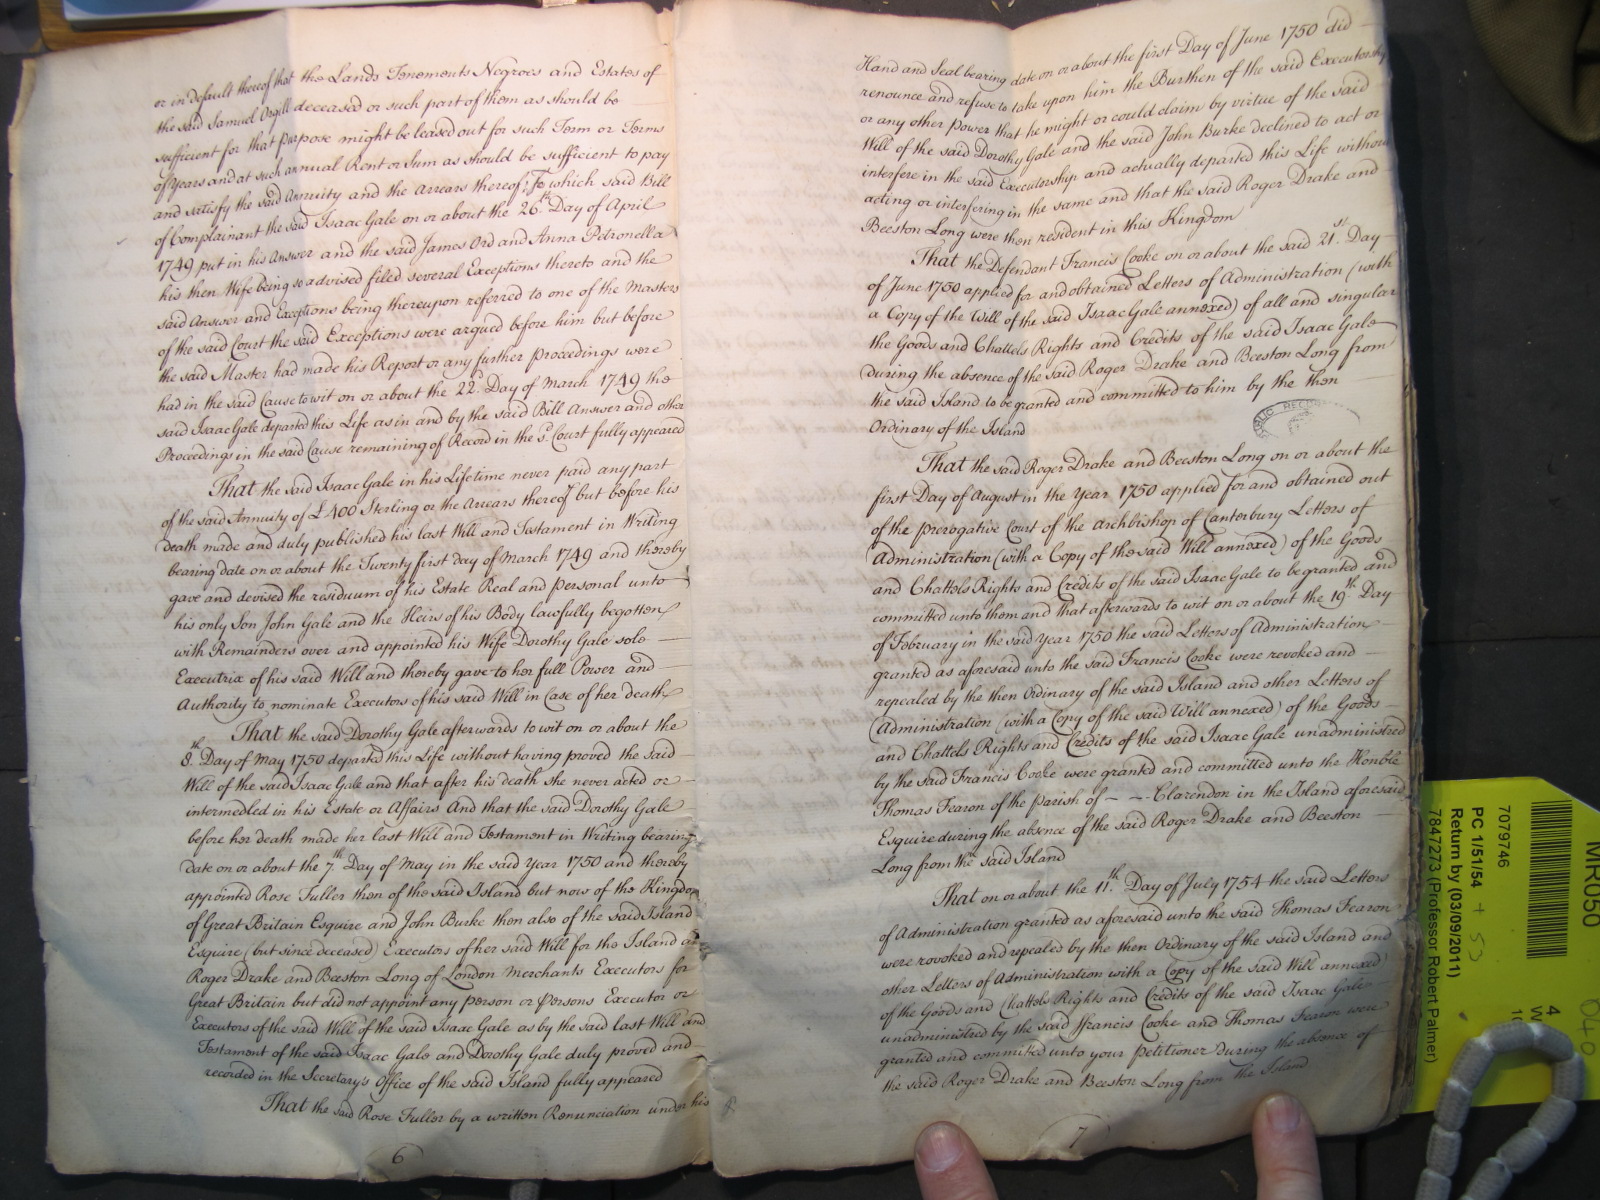 or in default thereof that the Lands Tenements Negroes and Estates of
the said Samuel Orgill deceased or such part of them as should be
sufficient for that purpose might be leased out for such Term or Terms
of Years and at such annual Rent or Sum as should be sufficient to pay
and satisfy the said Annuity and the Arrears thereof; To which said Bill
of Complainant the said Isaac Gale on or about the 26th Day of April
1749 put in his Answer and the said James Ord and Anna Petronella
his then Wife being so advised filed several Exceptions thereto and the
said Answer and Exceptions being thereupon referred to one of the Masters
of the said Court the said Exceptions were argued before him but before
the said Master had made his Report or any further Proceedings were
had in the said Cause to wit on or about the 22d Day of March 1749 the
said Isaac Gale departed this Life as in and by the said Bill Answer and other
Proceedings in the said Cause remaining of Record in the sd. Court fully appeared
That the said Isaac Gale in his Lifetime never paid any part
of the said Annuity of £400 Sterling or the Arrears thereof but before his
death made and duly published his last Will and Testament in Writing
bearing date on or about the Twenty first day of March 1749 and thereby
gave and devised the residuum of his Estate Real and Personal unto
his only Son John Gale and the Heirs of his Body lawfully begotten
with Remainders over and appointed his Wife Dorothy Gale sole
Executrix of his said Will and thereby gave to her full Power and
Authority to nominate Executors of his said Will in Case of her death
That the said Dorothy Gale afterwards to wit on or about the
8th. Day of May 1750 departed this Life without having proved the said
Will of the said Isaac Gale and that after his death she never acted or
intermedled in his Estate or Affairs And that the said Dorothy Gale
before her death made her last Will and Testament in Writing bearing
date on or about the 7th. Day of May in the said Year 1750 and thereby
appointed Rose Fuller then of the said Island but now of the Kingdom
of Great Britain Esquire and John Burke then also of the said Island
Esquire (but since deceased) Executors of her said Will for the Island and
Roger Drake and Beeston Long of London Merchants Executors for
Great Britain but did not appoint any person or persons Executor or
Executors of the said Will of the said Isaac Gale as by the said last Will and
Testament of the said Isaac Gale and Dorothy Gale duly proved and
recorded in the Secretary's Office of the said Island fully appeared
That the said Rose Fuller by a written Renunciation under his
6
Hand and Seal bearing date on or about the first Day of June 1750 did
renounce and refuse to take upon him the Burthen of the said Executorship
or any other Power that he might or could claim by virtue of the said
Will of the said Dorothy Gale and the said John Burke declined to act or
interfere in the said Executorship and actually departed this Life without
acting or interfering in the same and that the said Roger Drake and
Beeston Long were then resident in this Kingdom
That the Defendant Francis Cooke on or about the said 21st. Day
of June 1750 applied for and obtained Letters of Administration (with
a Copy of the Will of the said Isaac Gale annexed) of all and singular
the Goods and Chattels Rights and Credits of the said Isaac Gale
during the absence of the said Roger Drake and Beeston Long from
the said Island to be granted and committed to him by the then
Ordinary of the Island
PUBLIC RECORD
That the said Roger Drake and Beeston Long on or about the
first Day of August in the Year 1750 applied for and obtained out
of the Prerogative Court of the Archbishop of Canterbury Letters of
Administration (with a Copy of the said Will annexed) of the Goods
and Chattels Rights and Credits of the said Isaac Gale to be granted and
committed unto them and that afterwards to wit on or about the 19th. Day
of February in the said Year 1750 the said Letters of Administration
granted as aforesaid unto the said Francis Cooke were revoked and
repealed by the then Ordinary of the said Island and other Letters of
Administration (with a Copy of the said Will annexed) of the Goods
and Chattels Rights and Credits of the said Isaac Gale unadministred
by the said Francis Cooke were granted and committed unto the Honble
Thomas Fearon of the Parish of - - Clarendon in the Island aforesaid
Esquire during the absence of the said Roger Drake and Beeston
Long from the said Island
That on or about the 11th. Day of July 1754 the said Letters
of Administration granted as aforesaid unto the said Thomas Fearon
were revoked and repealed by the then Ordinary of the said Island and
other Letters of Administration with a Copy of the said Will annexed)
of the Goods and Chattels Rights and Credits of the said Isaac Gale
unadministred by the said Francis Cooke and Thomas Fearon were
granted and committed unto your Petitioner during the absence of
the said Roger Drake and Beeston Long from the Island
7
MR050
7079746
PC 1/51/54 + 53
Return by (03/09/2011)
7847273 (Professor Robert Palmer)
4
040